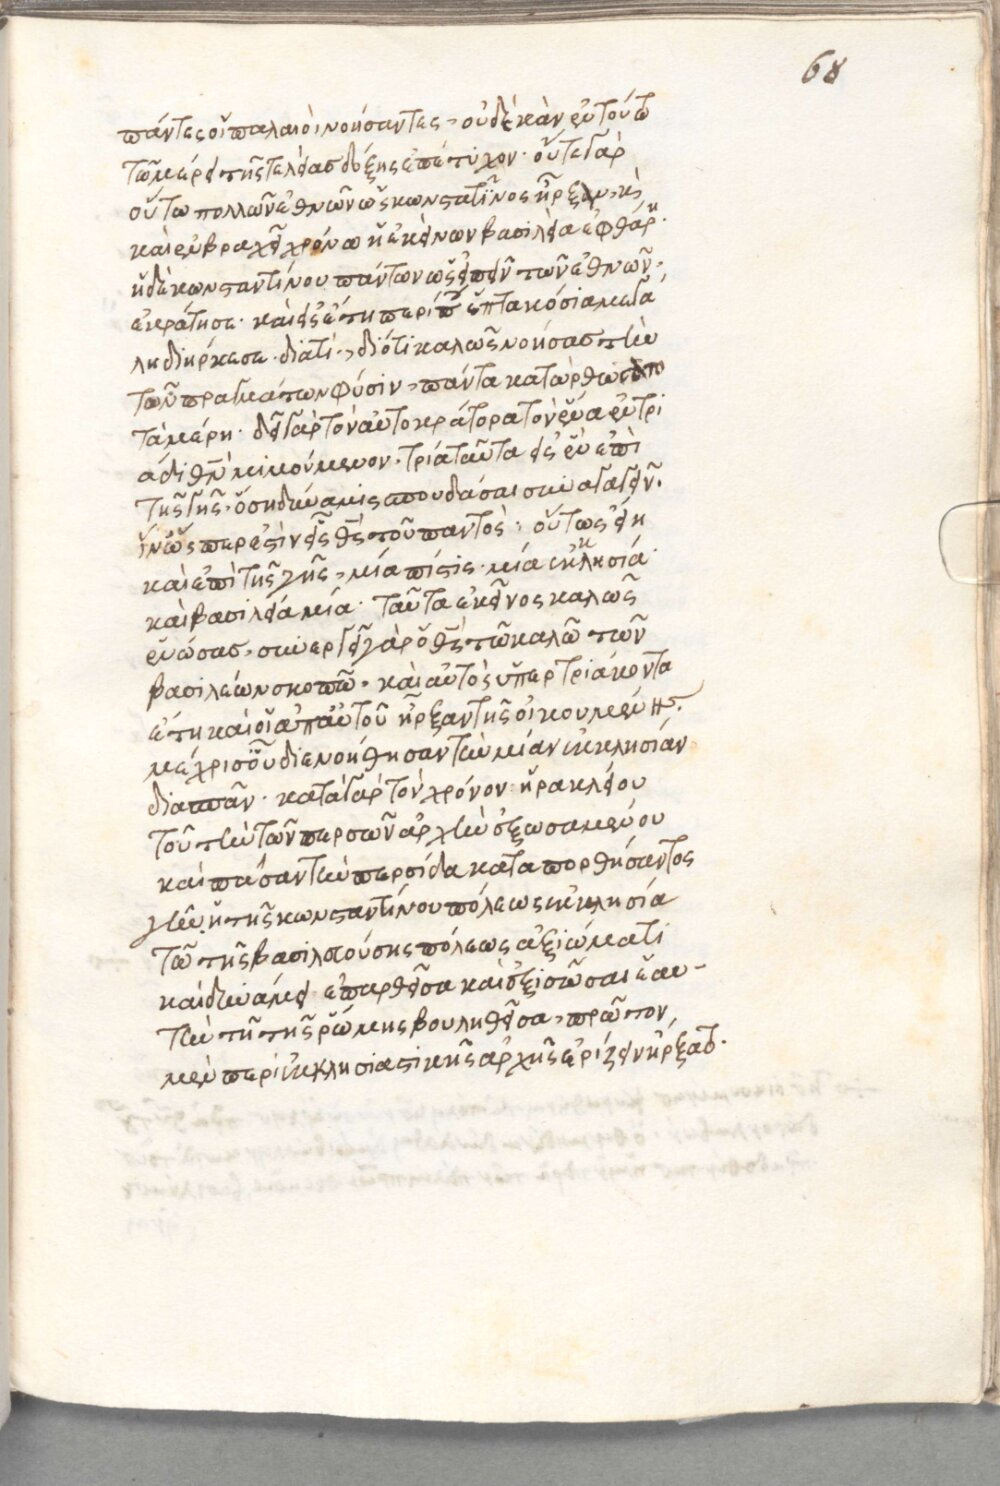 68
πάντες οἱ παλαιοὶ νοήσαντες, οὐδὲ κἂν ἐν τούτω
τῶ μέρει τῆς τελείας δόξης ἐπέτυχον· οὔτε γὰρ
οὕτω πολλῶν ἐθνῶν ὡς κωνσταντῖνος ἦρξαν, κὶ
καὶ ἐν βραχεῖ χρόνω ἡ ἐκείνων βασιλεία ἐφθάρη·
ἡ δὲ κωνσταντίνου πάντων ὡς εἰπεῖν τῶν ἐθνῶν,
ἐκράτησε· καὶ εἰς ἔτη περίπου ἑπτακόσια μεγά
λη διήρκεσε· διατί, διότι καλῶς νοήσας τὴν
τῶν πραγμάτων φύσιν, πάντα κατώρθωσε
τὰ μέρη· δεῖ γὰρ τὸν αὐτοκράτορα τὸν ἕνα ἐν τρι
άδι θεὸν μιμούμενον· τρία ταῦτα εἰς ἓν ἐπὶ
τῆς γῆς, ὅση δύναμις σπουδάσαι συναγαγεῖν·
ἵν' ὥσπερ ἐστὶν εἷς θεὸς τοῦ παντὸς· οὕτως εἴη
καὶ ἐπὶ τῆς γῆς, μία πίστις· μία ἐκκλησία·
καὶ βασιλεία μία· ταῦτα ἐκεῖνος καλῶς
ἑνώσας, συνεργεῖ γὰρ ὁ θεὸς τῶ καλῶ τῶν
βασιλέων σκοπῶ· καὶ αὐτὸς ὑπὲρ τριάκοντα
ἔτη καὶ οἱ ἀπ' αὐτοῦ ἦρξαν τῆς οἰκουμένης·
μέχρις οὗ διενοήθησαν τὴν μίαν ἐκκλησίαν
διασπᾶν· κατὰ γὰρ τὸν χρόνον ἡρακλείου
τοῦ τὴν τῶν περσῶν ἀρχὴν ἐξωσαμένου
καὶ πᾶσαν τὴν περσίδα καταπορθήσαντος
γῆν, ἡ τῆς κωνσταντίνου πόλεως ἐκκλησία
τῶ τῆς βασιλευούσης πόλεως ἀξιώματι
καὶ δυνάμει ἐπαρθεῖσα καὶ ἐξισῶσαι ἑαυ-
τὴν τῆ τῆς ῥώμης βουληθεῖσα, πρῶτον,
μὲν περὶ ἐκκλησιαστικῆς ἀρχῆς ἐρίζειν ἤρξατο·